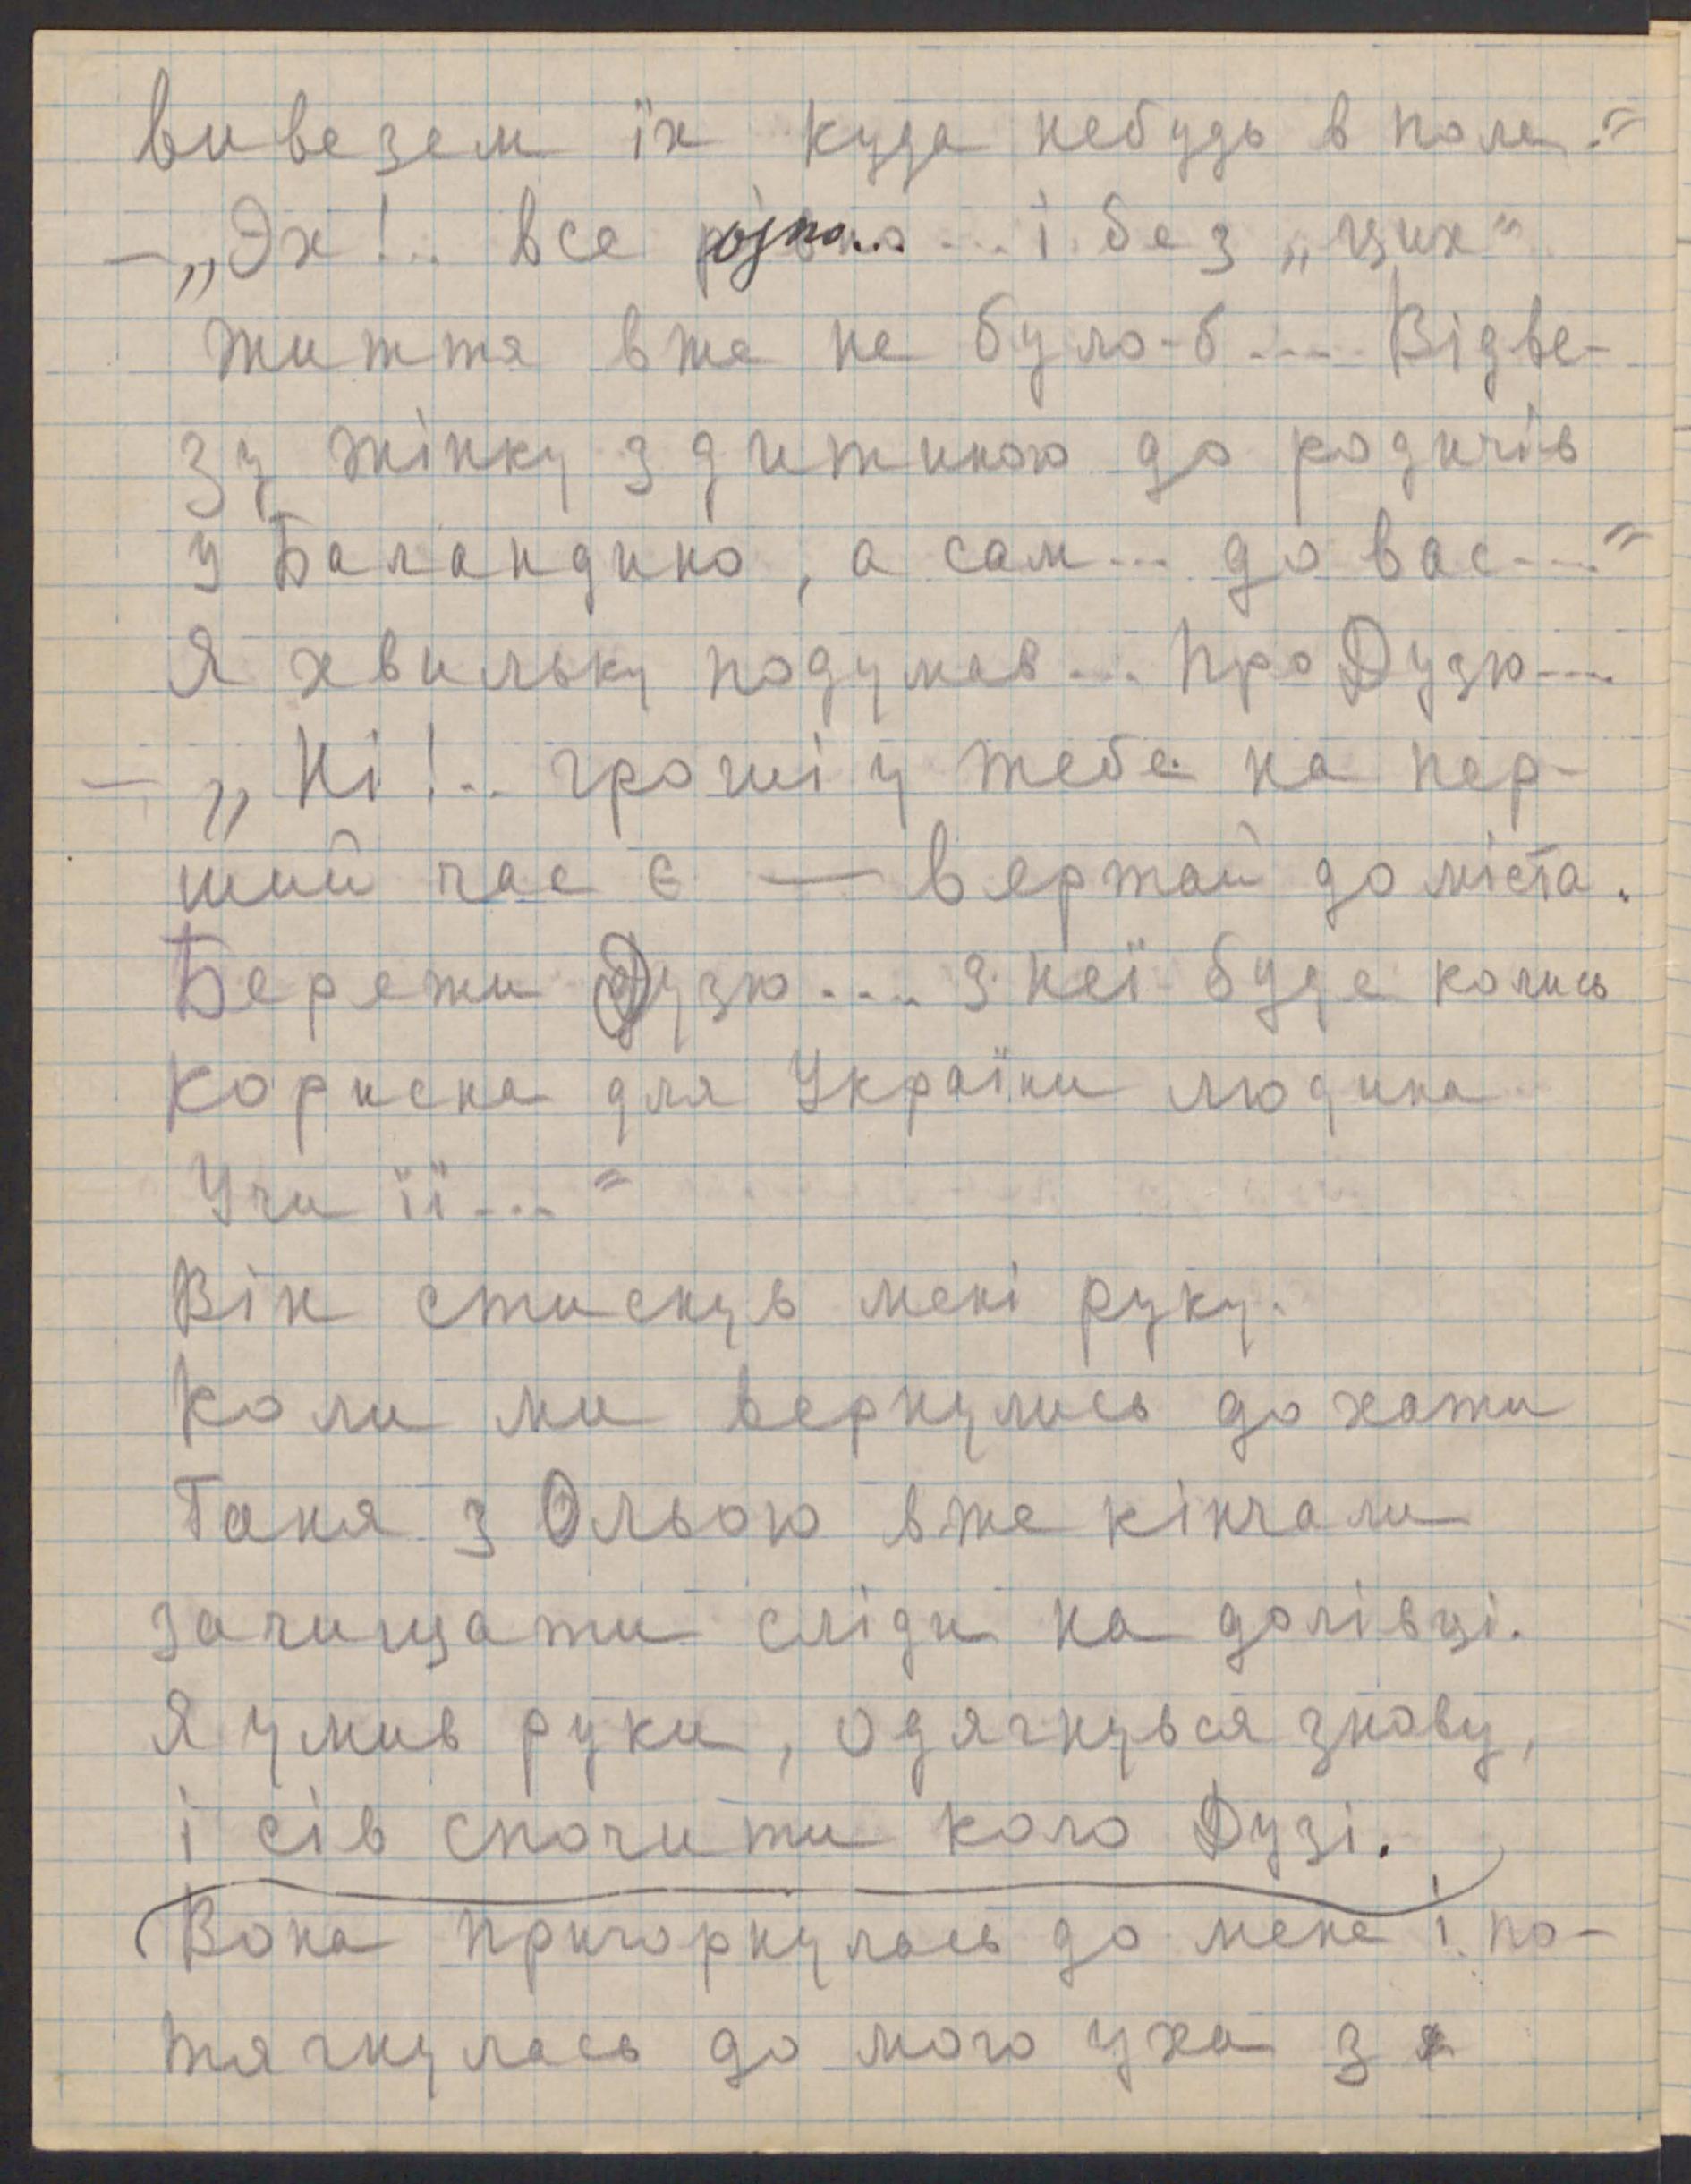 вивезем їх куда небудь в поле."
— „Эх!.. все рівно... і без „цих"
життя вже не було-б.... Відве-
зу жінку з дитиною до родичів
у Баландино, а сам... до вас...."
Я хвильку подумав... про Дузю....
— „Ні!.. гроші у тебе на пер-
ший час є — вертай до міста.
Бережи Дузю.... з неї буде колись
корисна для України людина
Учи її...."
Він стиснув мені руку.
Коли ми вернулись до хати
Таня з Ольою вже кінчали
зачищати сліди на долівці.
Я умив руки, одягнувся знову,
і сів спочити коло Дузі.
Вона пригорнулась до мене і по-
тягнулась до мого уха з